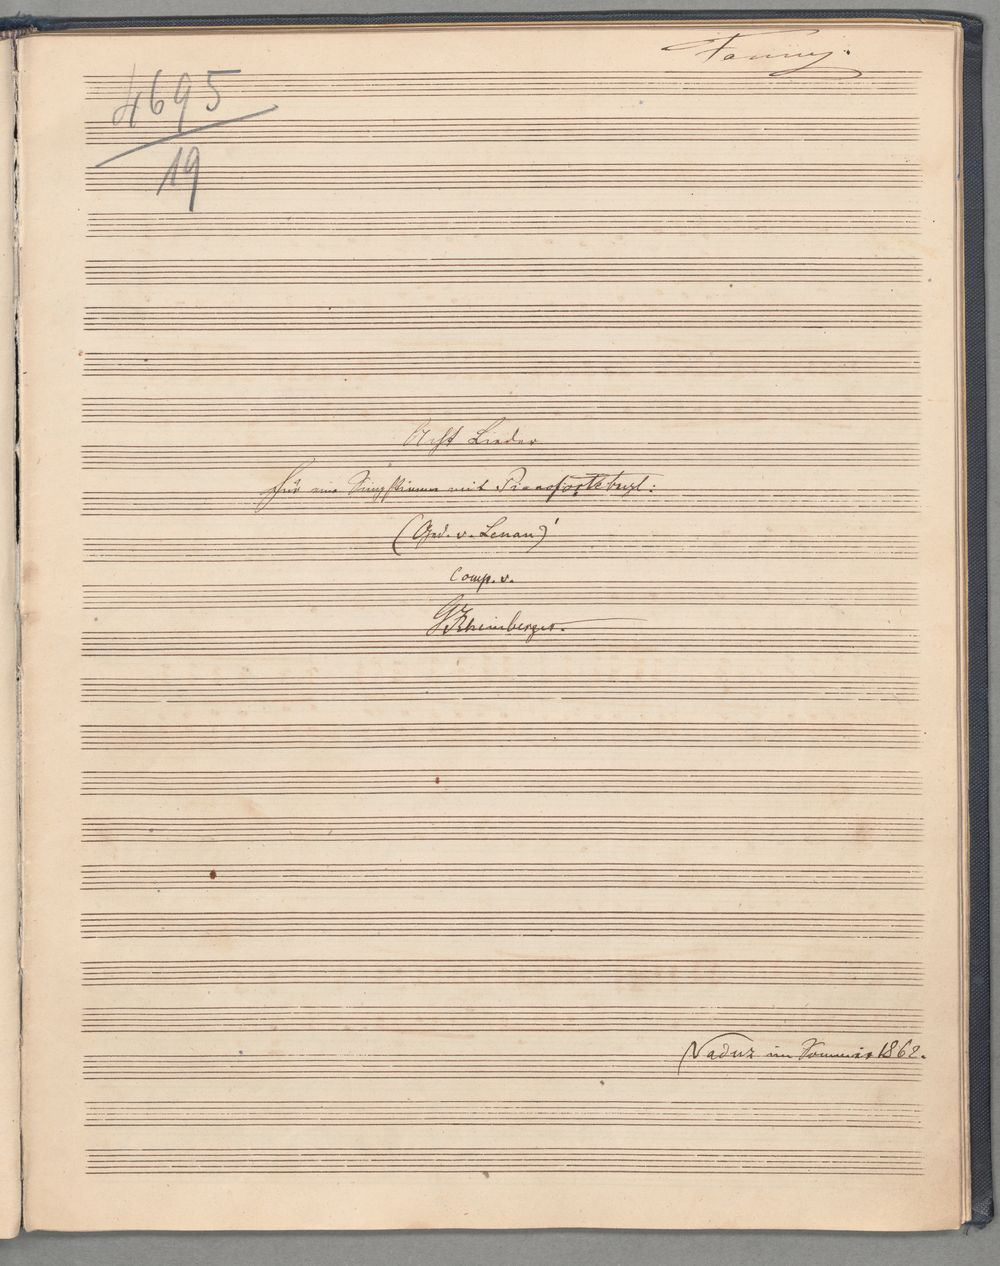 Fanny.
4695
19
Acht Lieder
für eine Singstimme mit Pianofortebegl:
(Ged. v. Lenau)
comp. v.
JRheinberger.
Vaduz im Sommer 1862.